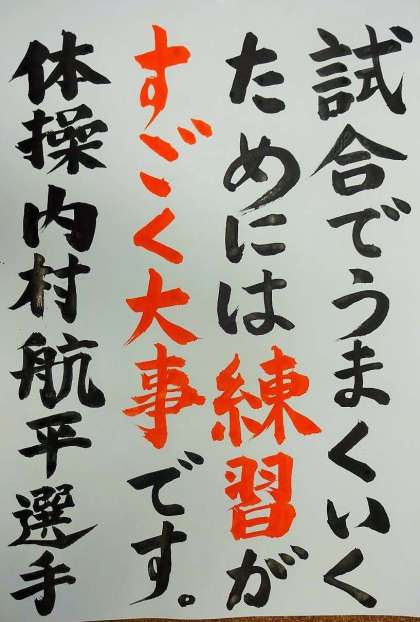 試合でうまくいく
ためには練習が
すごく大事です。
体操内村航平選手